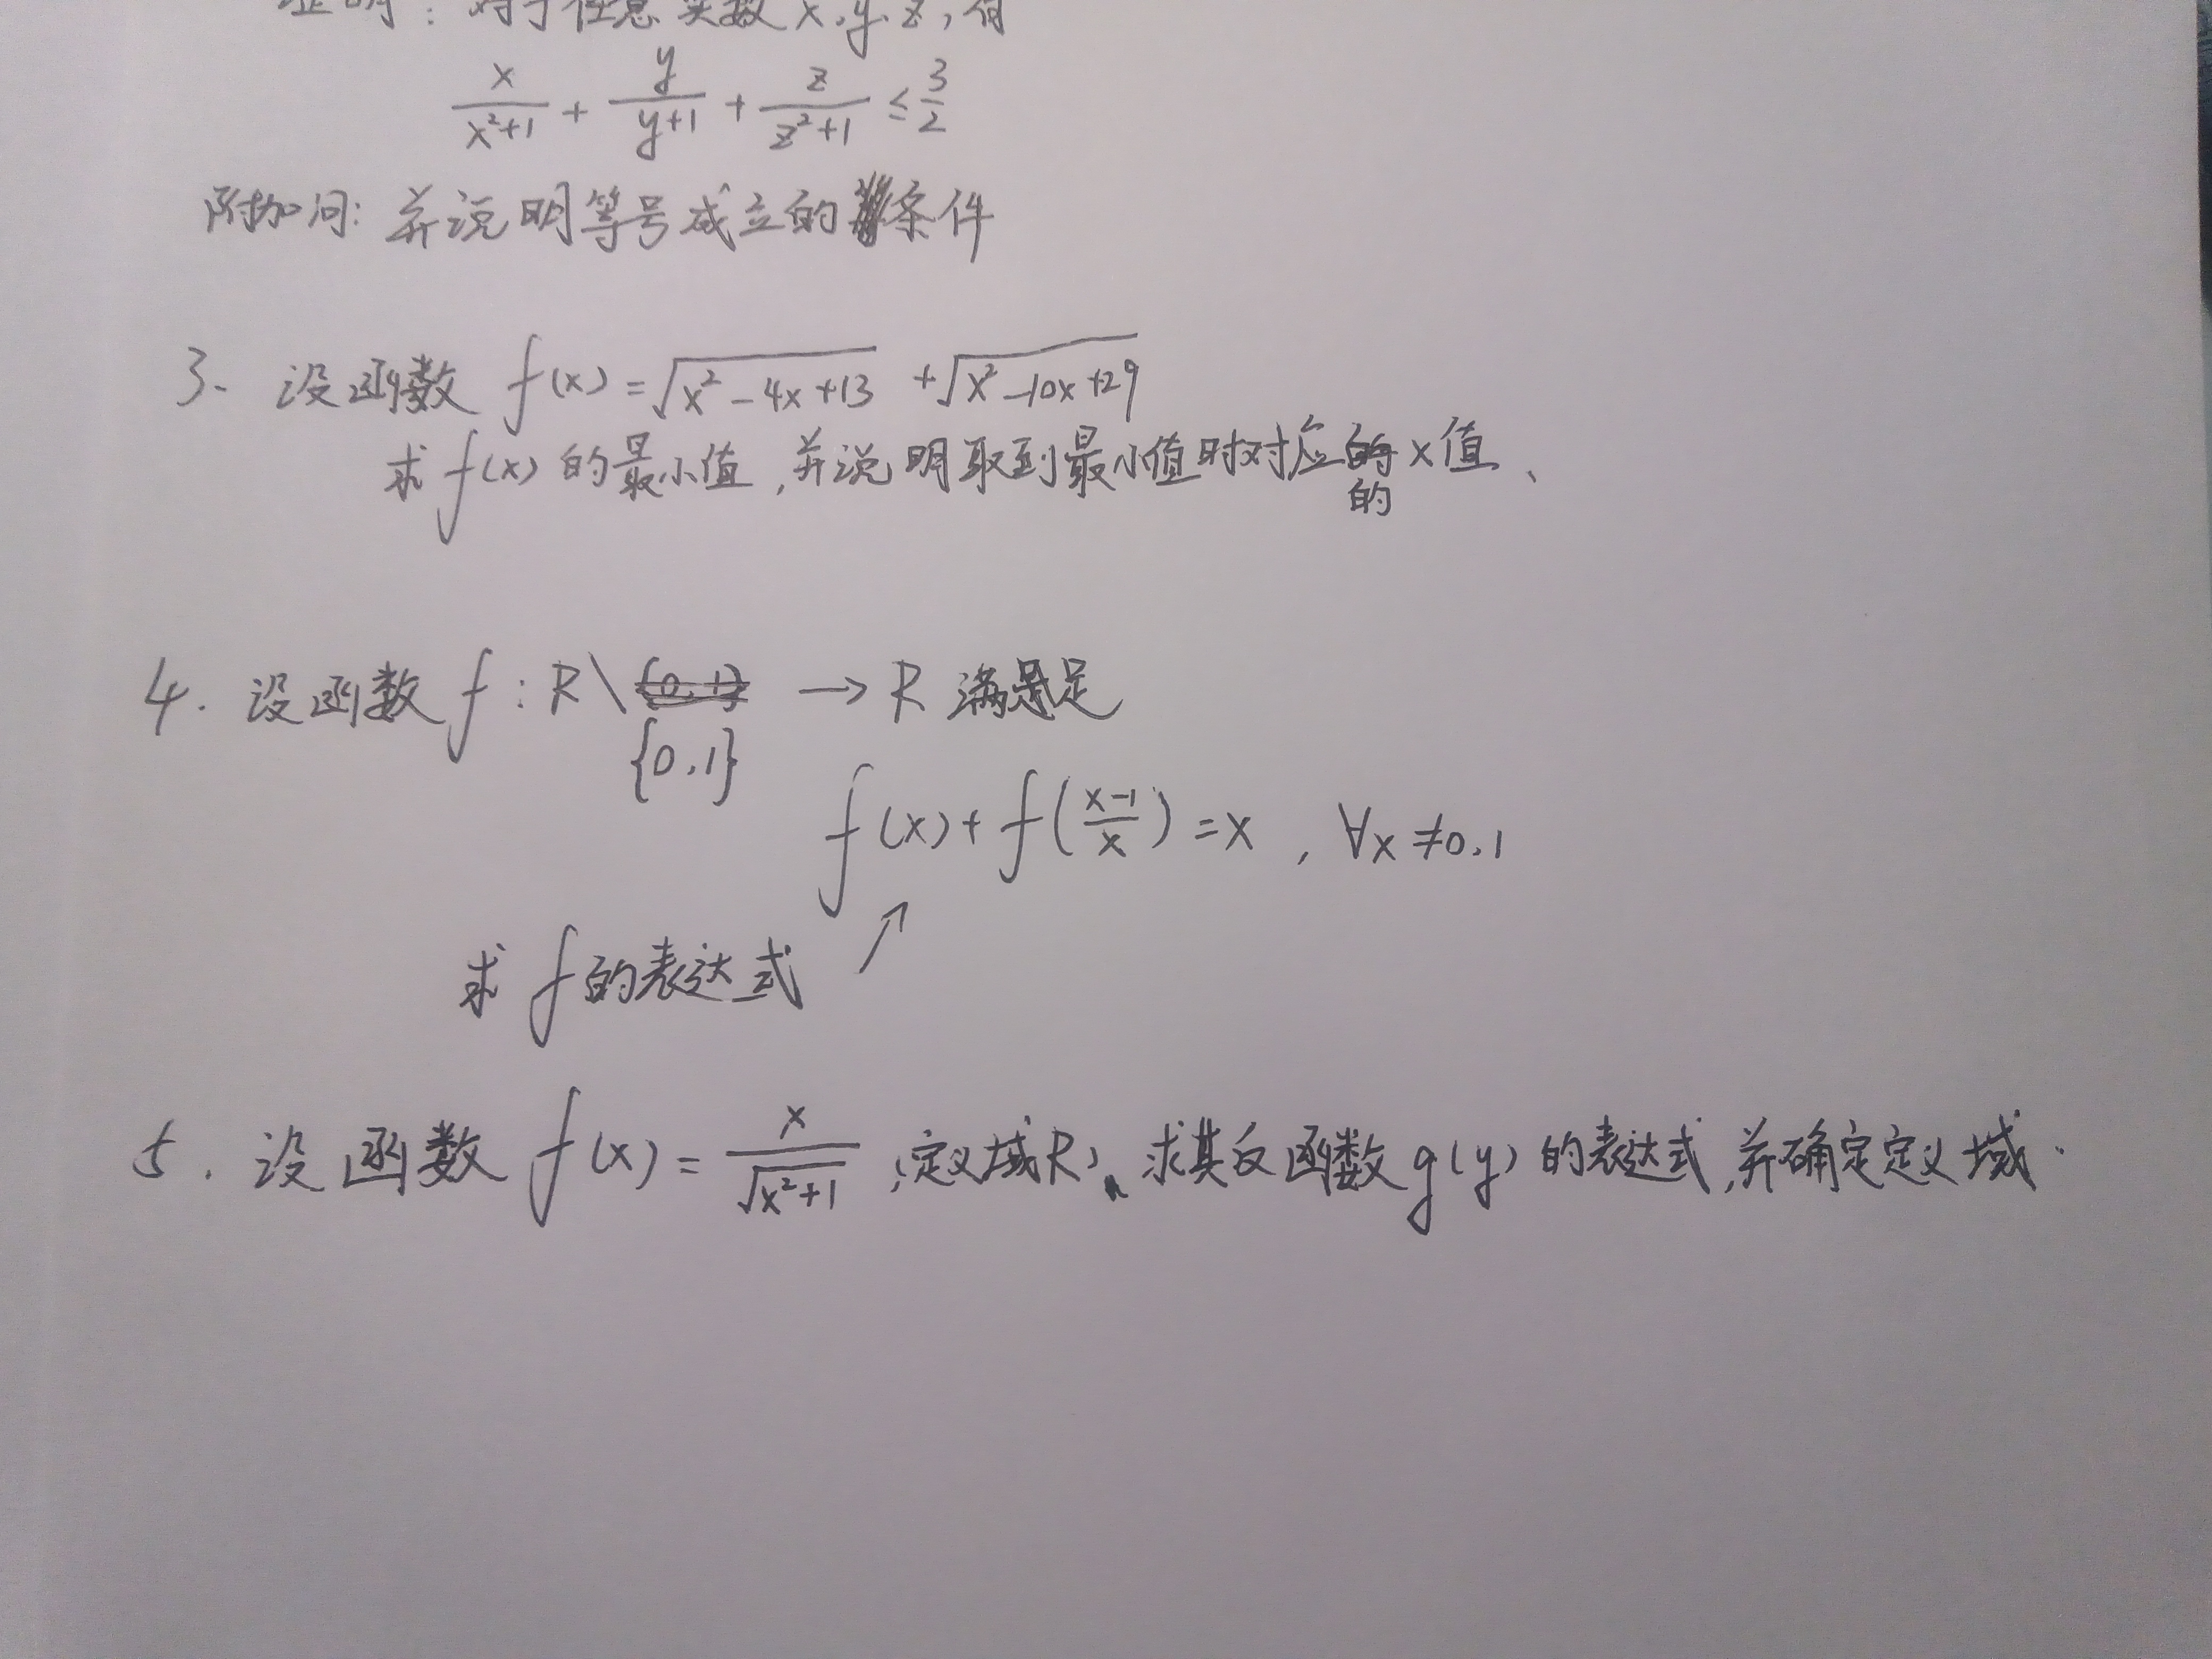 证明：对于任意实数 x, y, z, 有
x/(x²+1) + y/(y+1) + z/(z²+1) ≤ 3/2
附加问: 并说明等号成立的条件
3、设函数 f(x) = √(x²-4x+13) + √(x²-10x+29)
求 f(x) 的最小值, 并说明取到最小值时对应的 x 值、
4. 设函数 f : R \ {0,1} → R 满足
f(x) + f((x-1)/x) = x , ∀x ≠ 0,1
求 f 的表达式 ↗
5. 设函数 f(x) = x/√(x²+1) ,定义域R, 求其反函数 g(y) 的表达式, 并确定定义域.